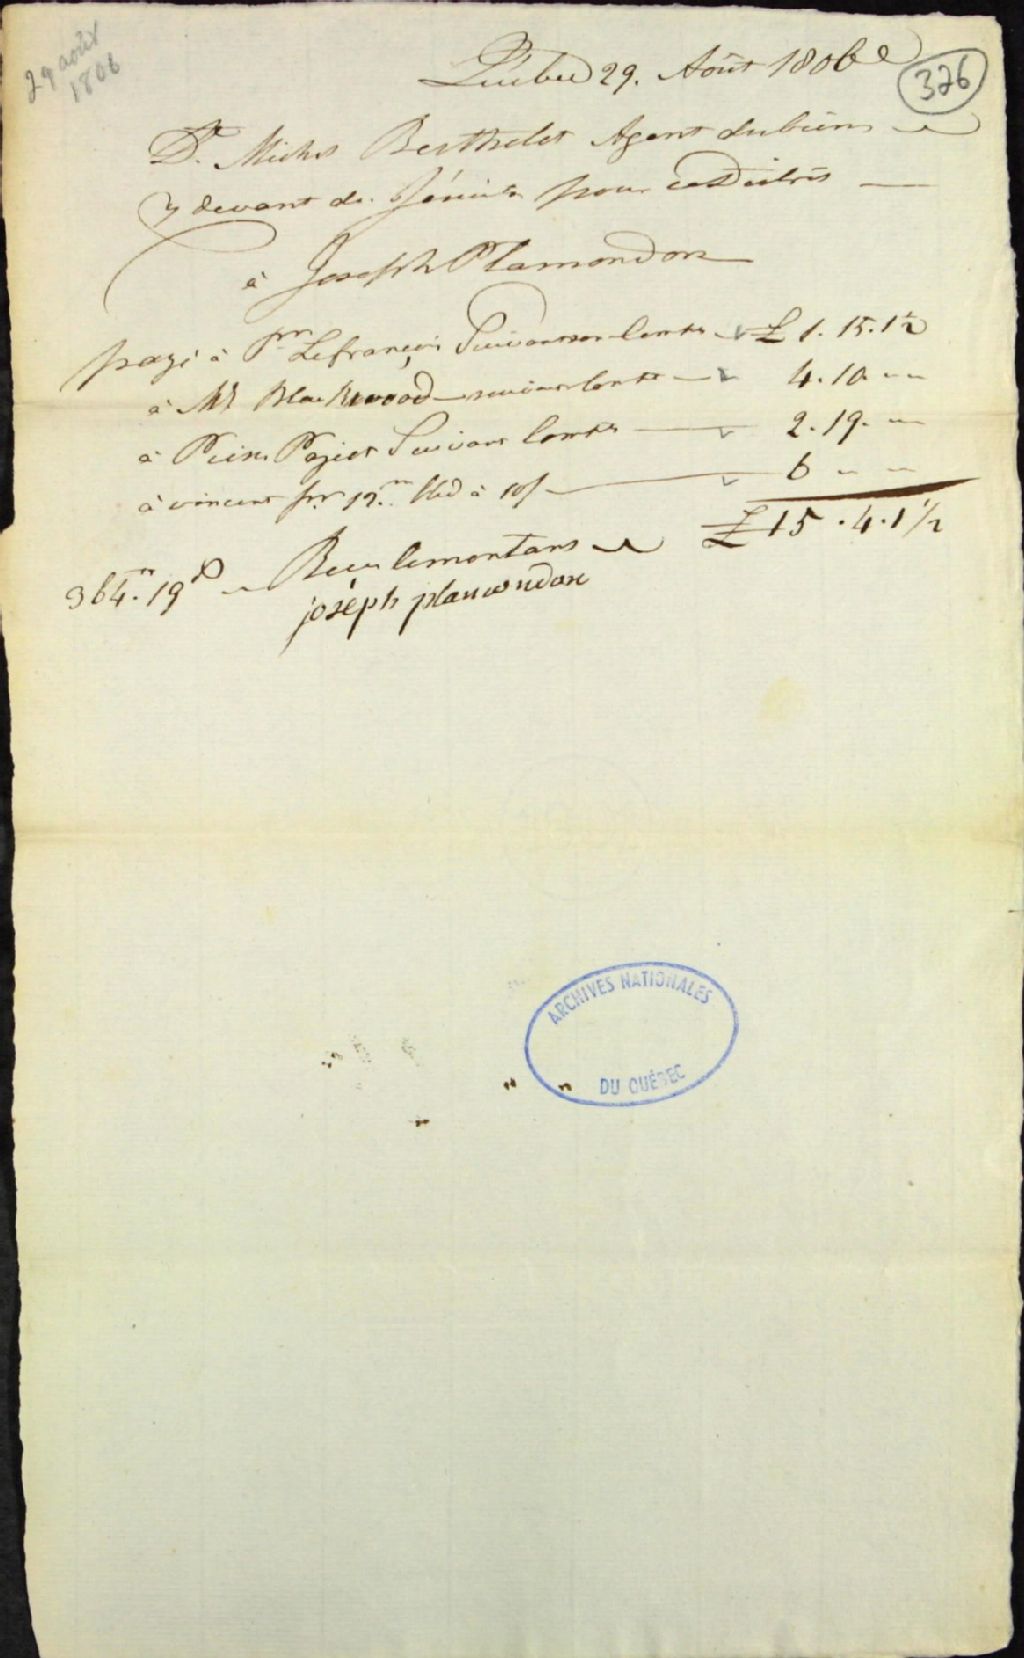 29 août
1806
326
Québec 29. Août 1806
Dt. Michel Berthelot Agent du biens
cy devant de Jésuites pour ce District
à Joseph Plamondon
payé à Prre Lefrançois Suivant son Compte £ 1. 15. 1½
à Mr Blackwood suivant Compte 4. 10 " "
à Pierre Pagéot Suivant Compte 2. 19. "
à vincent pr. 12.m Bled à 10/ 6 " "
£ 15 . 4 . 1 ½
364.19s Recu le montans
joseph plamondon
ARCHIVES NATIONALES
DU QUÉBEC